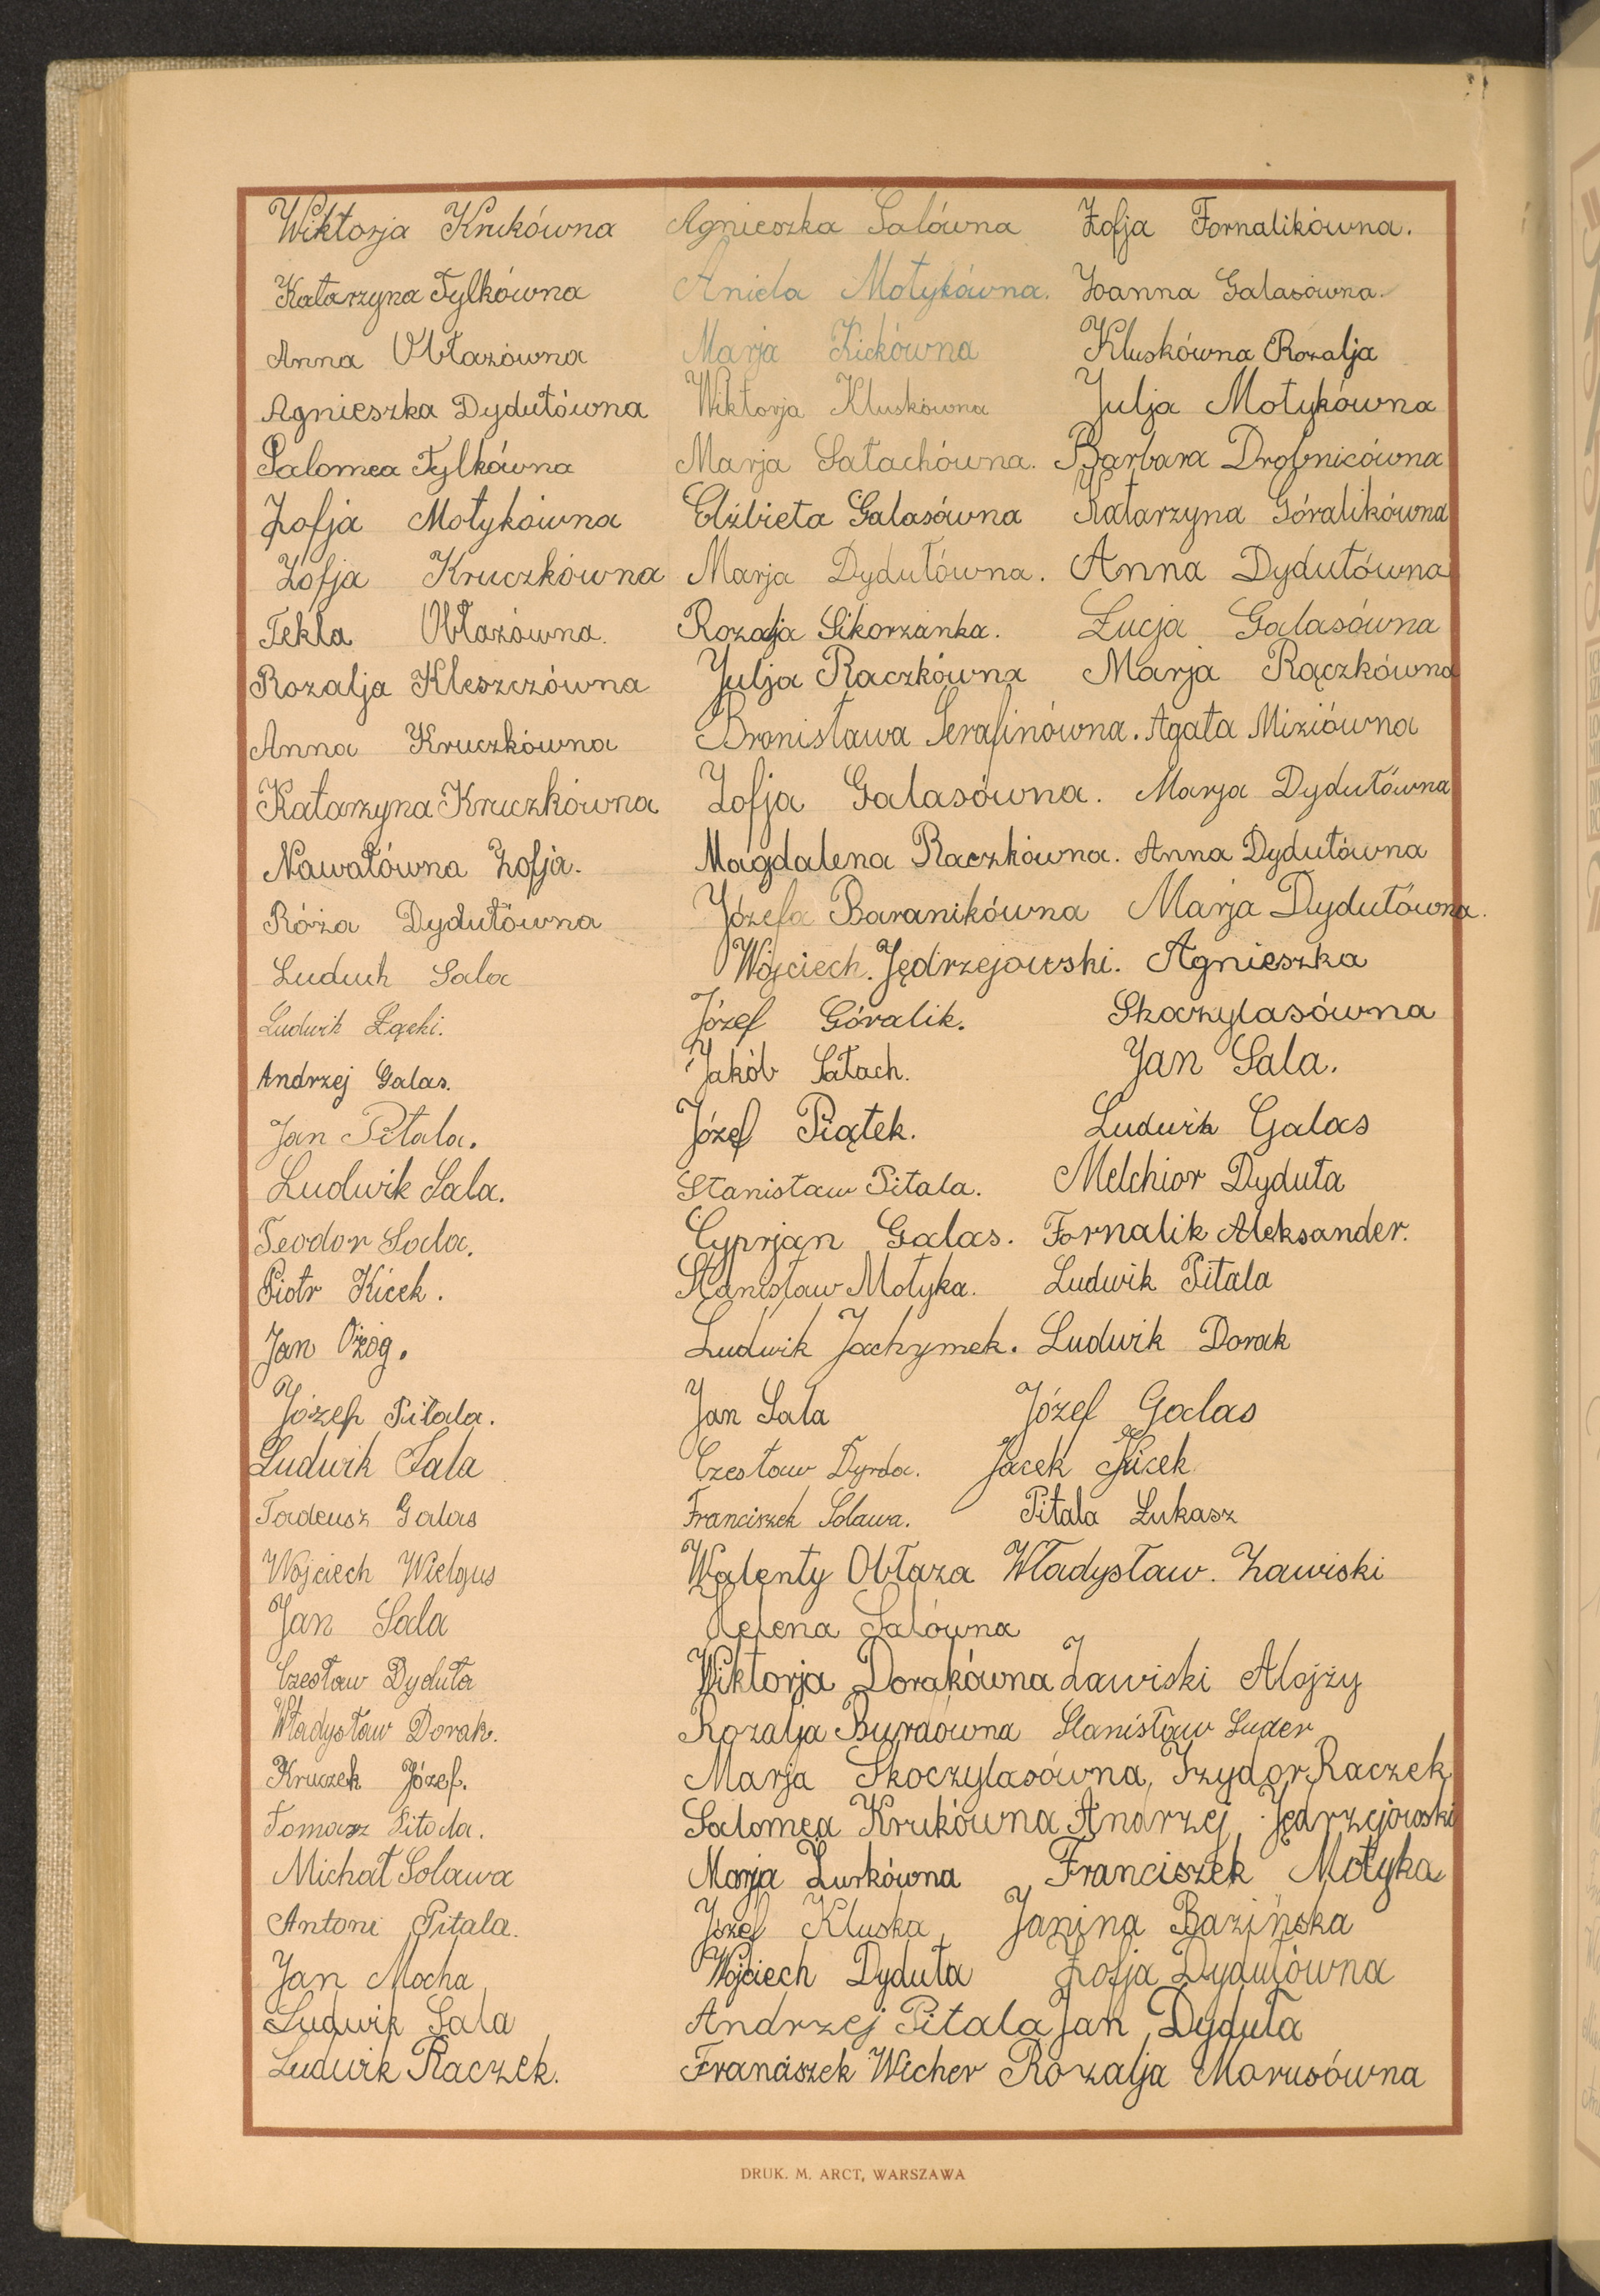 Wiktorja Krukówna Agnieszka Salówna Zofja Fornalikówna.
Katarzyna Tylkówna Aniela Motykówna. Joanna Galasówna.
Anna Obłazówna Marja Kickówna Kluskówna Rozalja
Agnieszka Dydutówna Wiktorja Kluskówna Julja Motykówna
Salomea Tylkówna Marja Sałachówna. Barbara Drobnicówna
Zofja Motykówna Elżbieta Galasówna Katarzyna Góralikówna
Zofja Kruczkówna Marja Dydutówna. Anna Dydutówna
Tekla Obłazówna. Rozalja Sikorzanka. Łucja Galasówna
Rozalja Kleszczówna Julja Raczkówna Marja Rączkówna
Anna Kruczkówna Bronisława Serafinówna. Agata Miziówna
Katarzyna Kruczkówna Zofja Galasówna. Marja Dydutówna
Nawałówna Zofja. Magdalena Raczkówna. Anna Dydutówna
Róża Dydutówna Józefa Baranikówna Marja Dydutówna.
Ludwik Sala Wojciech Jędrzejowski. Agnieszka
Ludwik Łącki. Józef Góralik. Skoczylasówna
Andrzej Galas. Jakób Sałach. Jan Sala.
Jan Pitala. Józef Piątek. Ludwik Galas
Ludwik Sala. Stanisław Pitala. Melchior Dyduta
Teodor Sala. Cyprjan Galas. Fornalik Aleksander.
Piotr Kicek. Stanisław Motyka. Ludwik Pitala
Jan Ożóg. Ludwik Jachymek. Ludwik Dorak
Józef Pitala. Jan Sala Józef Galas
Ludwik Sala Czesław Dyrda. Jacek Kicek
Tadeusz Galas Franciszek Solawa. Pitala Łukasz
Wojciech Wielgus Walenty Obłaza Władysław. Zawiski
Jan Sala Helena Salówna
Czesław Dyduta Wiktorja Dorakówna Zawiski Alojzy
Władysław Dorak. Rozalja Burdówna Stanisław Suder
Kruczek Józef. Marja Skoczylasówna, Izydor Raczek
Tomasz Pitala. Salomea Krukówna Andrzej Jędrzejowski
Michał Solawa Marja Żurkówna Franciszek Motyka
Antoni Pitala. Józef Kluska, Janina Bazińska
Jan Mocha Wojciech Dyduta Zofja Dydutówna
Ludwik Sala Andrzej Pitala Jan Dyduta
Ludwik Raczek. Franciszek Wicher Rozalja Morusówna
DRUK. M. ARCT, WARSZAWA